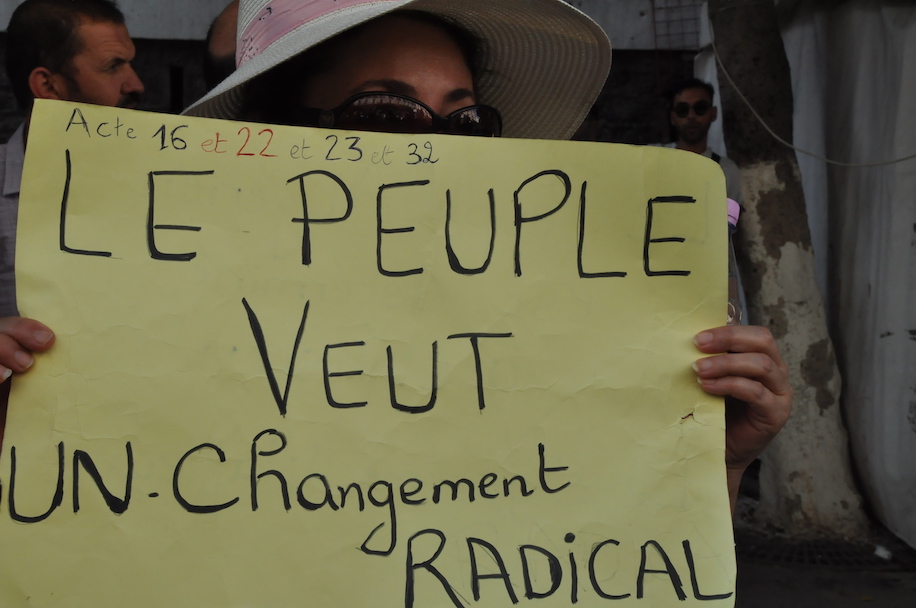 Acte 16 et 22 et 23 et 32
LE PEUPLE
VEUT
UN. Changement
RADICAL